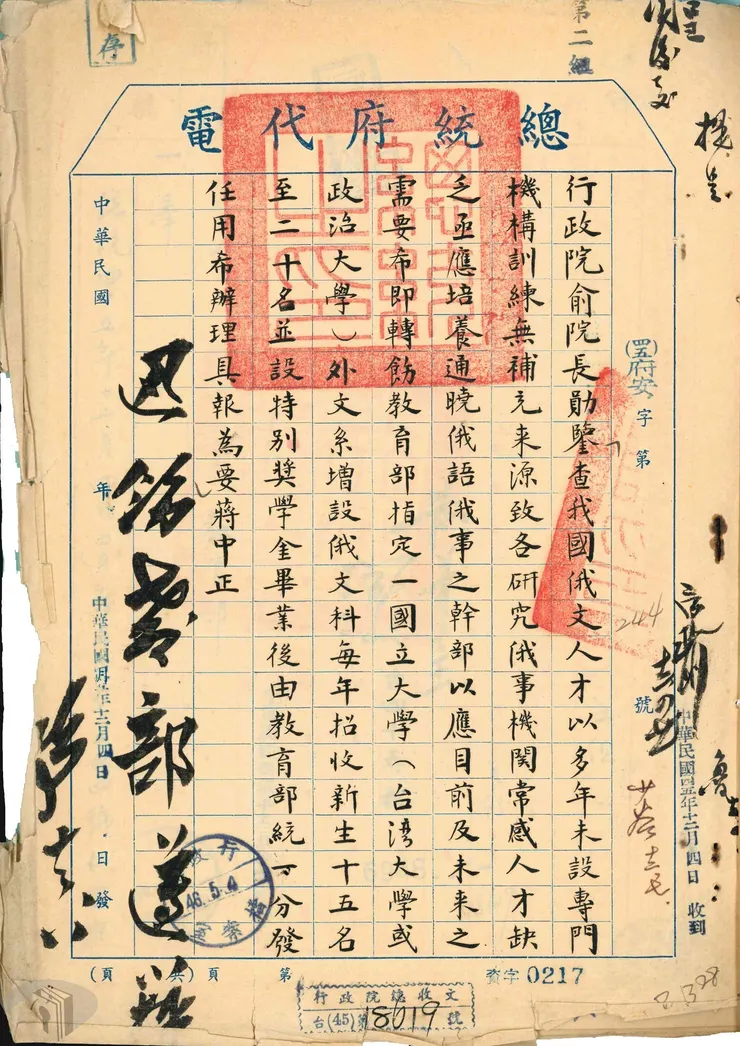 存
第二組
總統府代電
(四五)府安字第
244
號
中華民國四五年十二月四日 收到
行政院俞院長勛鑒查我國俄文人才以多年未設專門
機構訓練無補充來源致各研究俄事機関常感人才缺
乏亟應培養通曉俄語俄事之幹部以應目前及未來之
需要希即轉飭教育部指定一國立大學(台湾大學或
政治大學)外文系增設俄文科每年招收新生十五名
至二十名並設特別奬學金畢業後由教育部統一分發
任用希辦理具報為要蔣中正
迅飭教部遵辦
中華民國
年
中華民國四五年十二月四日
日發
46.5.4
(共 頁)
第 頁
資字 0217
行政院總收文
台(45)第8019號